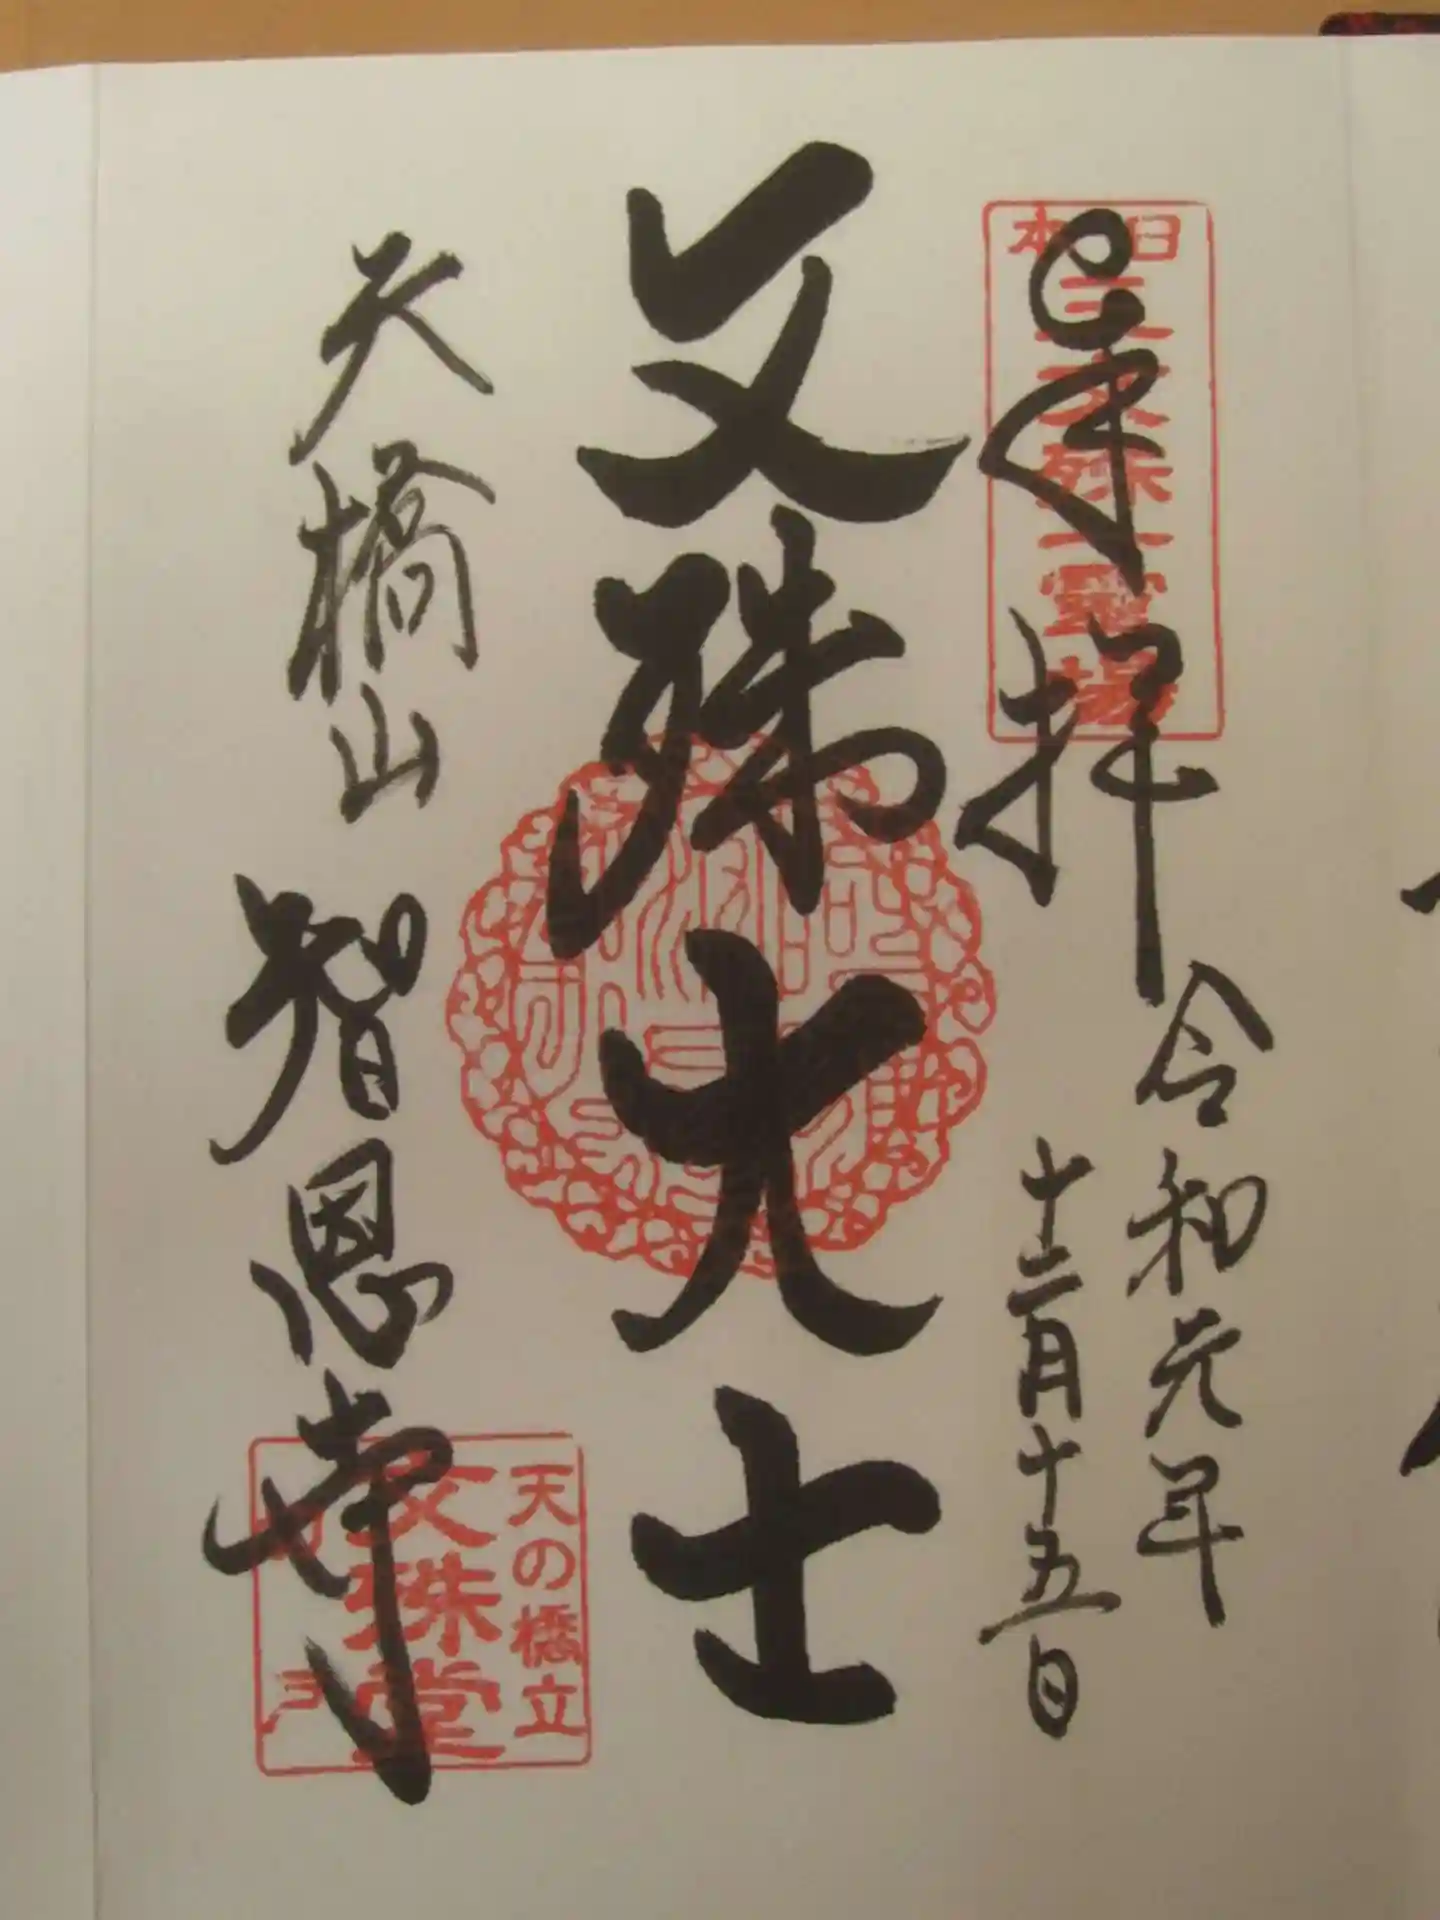 奉拝
日本三文殊一霊場
令和元年
十二月十五日
文殊大士
天橋山
智恩寺
天の橋立
文殊堂